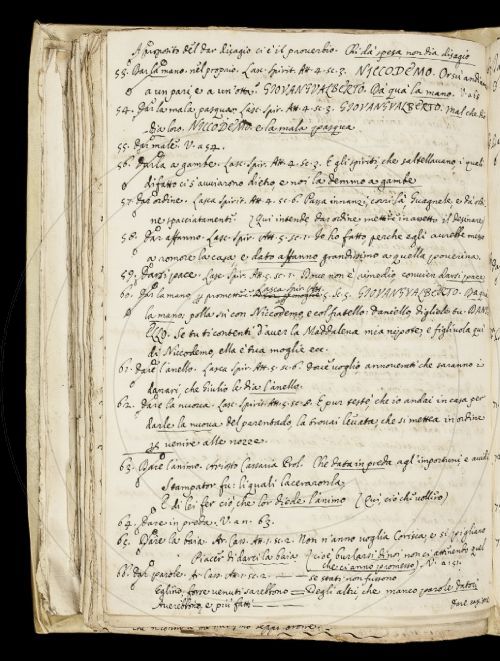 A proposito del dar disagio ci è il proverbio. Chi dà spesa non dia disagio
53. Dar la mano. nel proprio. Lasc. Spirit. Att. 4. sc. 3. NICCODEMO. Orsù andia
a un pari e a un'otta. GIOVANGUALBERTO. Da qua la mano.
54. Dar la mala pasqua. Lasc. Spir. Att. 4. sc. 3. GIOVANGUALBERTO. Mal che Dio
dia loro. NICCODEMO. e la mala pasqua
55. dar male. V. a 54.
56. Darla a gambe. Lasc. Spir. Att. 4. sc. 3. E gli spiriti, che saltellavano: i quali
di fatto ci s'avviarono dietro, e noi la demmo a gambe
57. dar ordine. Lasca Spirit. Att. 4. sc. 6. Passa innanzi, corri là Guagnele, e dà ordi
ne spacciatamente. (Qui intende dar ordine mettere in assetto il desinare)
58. Dar affanno. Lasc. Spir. Att. 5. sc. 1. Io ho fatto perche egli avrebbe messo
a romore la casa e dato affanno grandissimo a quella poverina.
59. Darsi pace. Lasc. Spir. Att. 5. sc. 1. Dove non è rimedio convien darsi pace
60. Dar la mano p. promettere. Lasca Spir. Att. 5. sc. 5. GIOVANGUALBERTO. Da qua
la mano, polla su con Niccodemo, e col fratello: Daniello digliele tu. DANI
ELLO. Se tu ti contenti d'aver la Maddalena mia nipote, e figliuola qui
di Niccodemo, ella è tua moglie ecc.
61. dare l'anello. Lasca Spir. Att. 5. sc. 6. dove voglio annoverarti che saranno i
danari, che Giulio le dia l'anello.
62. dare la nuova. Lasc. Spirit. Att. 5. sc. 8. E pur testè, che io andai in casa per
darle la nuova del parentado, la trovai levata, che si metteva in ordine
p. venire alle nozze.
63. Dare l'animo. Ariosto Cassaria Prol. Che data in preda agl'importuni, e avidi
Stampator fu: li quali laceraronla
E di lei fer ciò che lor diede l'animo (Qui, ciò che vollero)
64. dare in preda. V. a n. 63.
65. Dare la baia. Ar. Cass. Att. 1. sc. 2. Non n'anno voglia Corisca, e si pigliano
Piacer di darci la baia (cioè, burlarsi di noi non ci attenendo quel
che ci anno promesso) V. a 151.
66. dar parole. Ar. Cass. Att. 1. sc. 2. — se stati non fussono
Eglino, forse venuti sarebbono — Degli altri che manco parole datori
Averebbono, e più fatti —